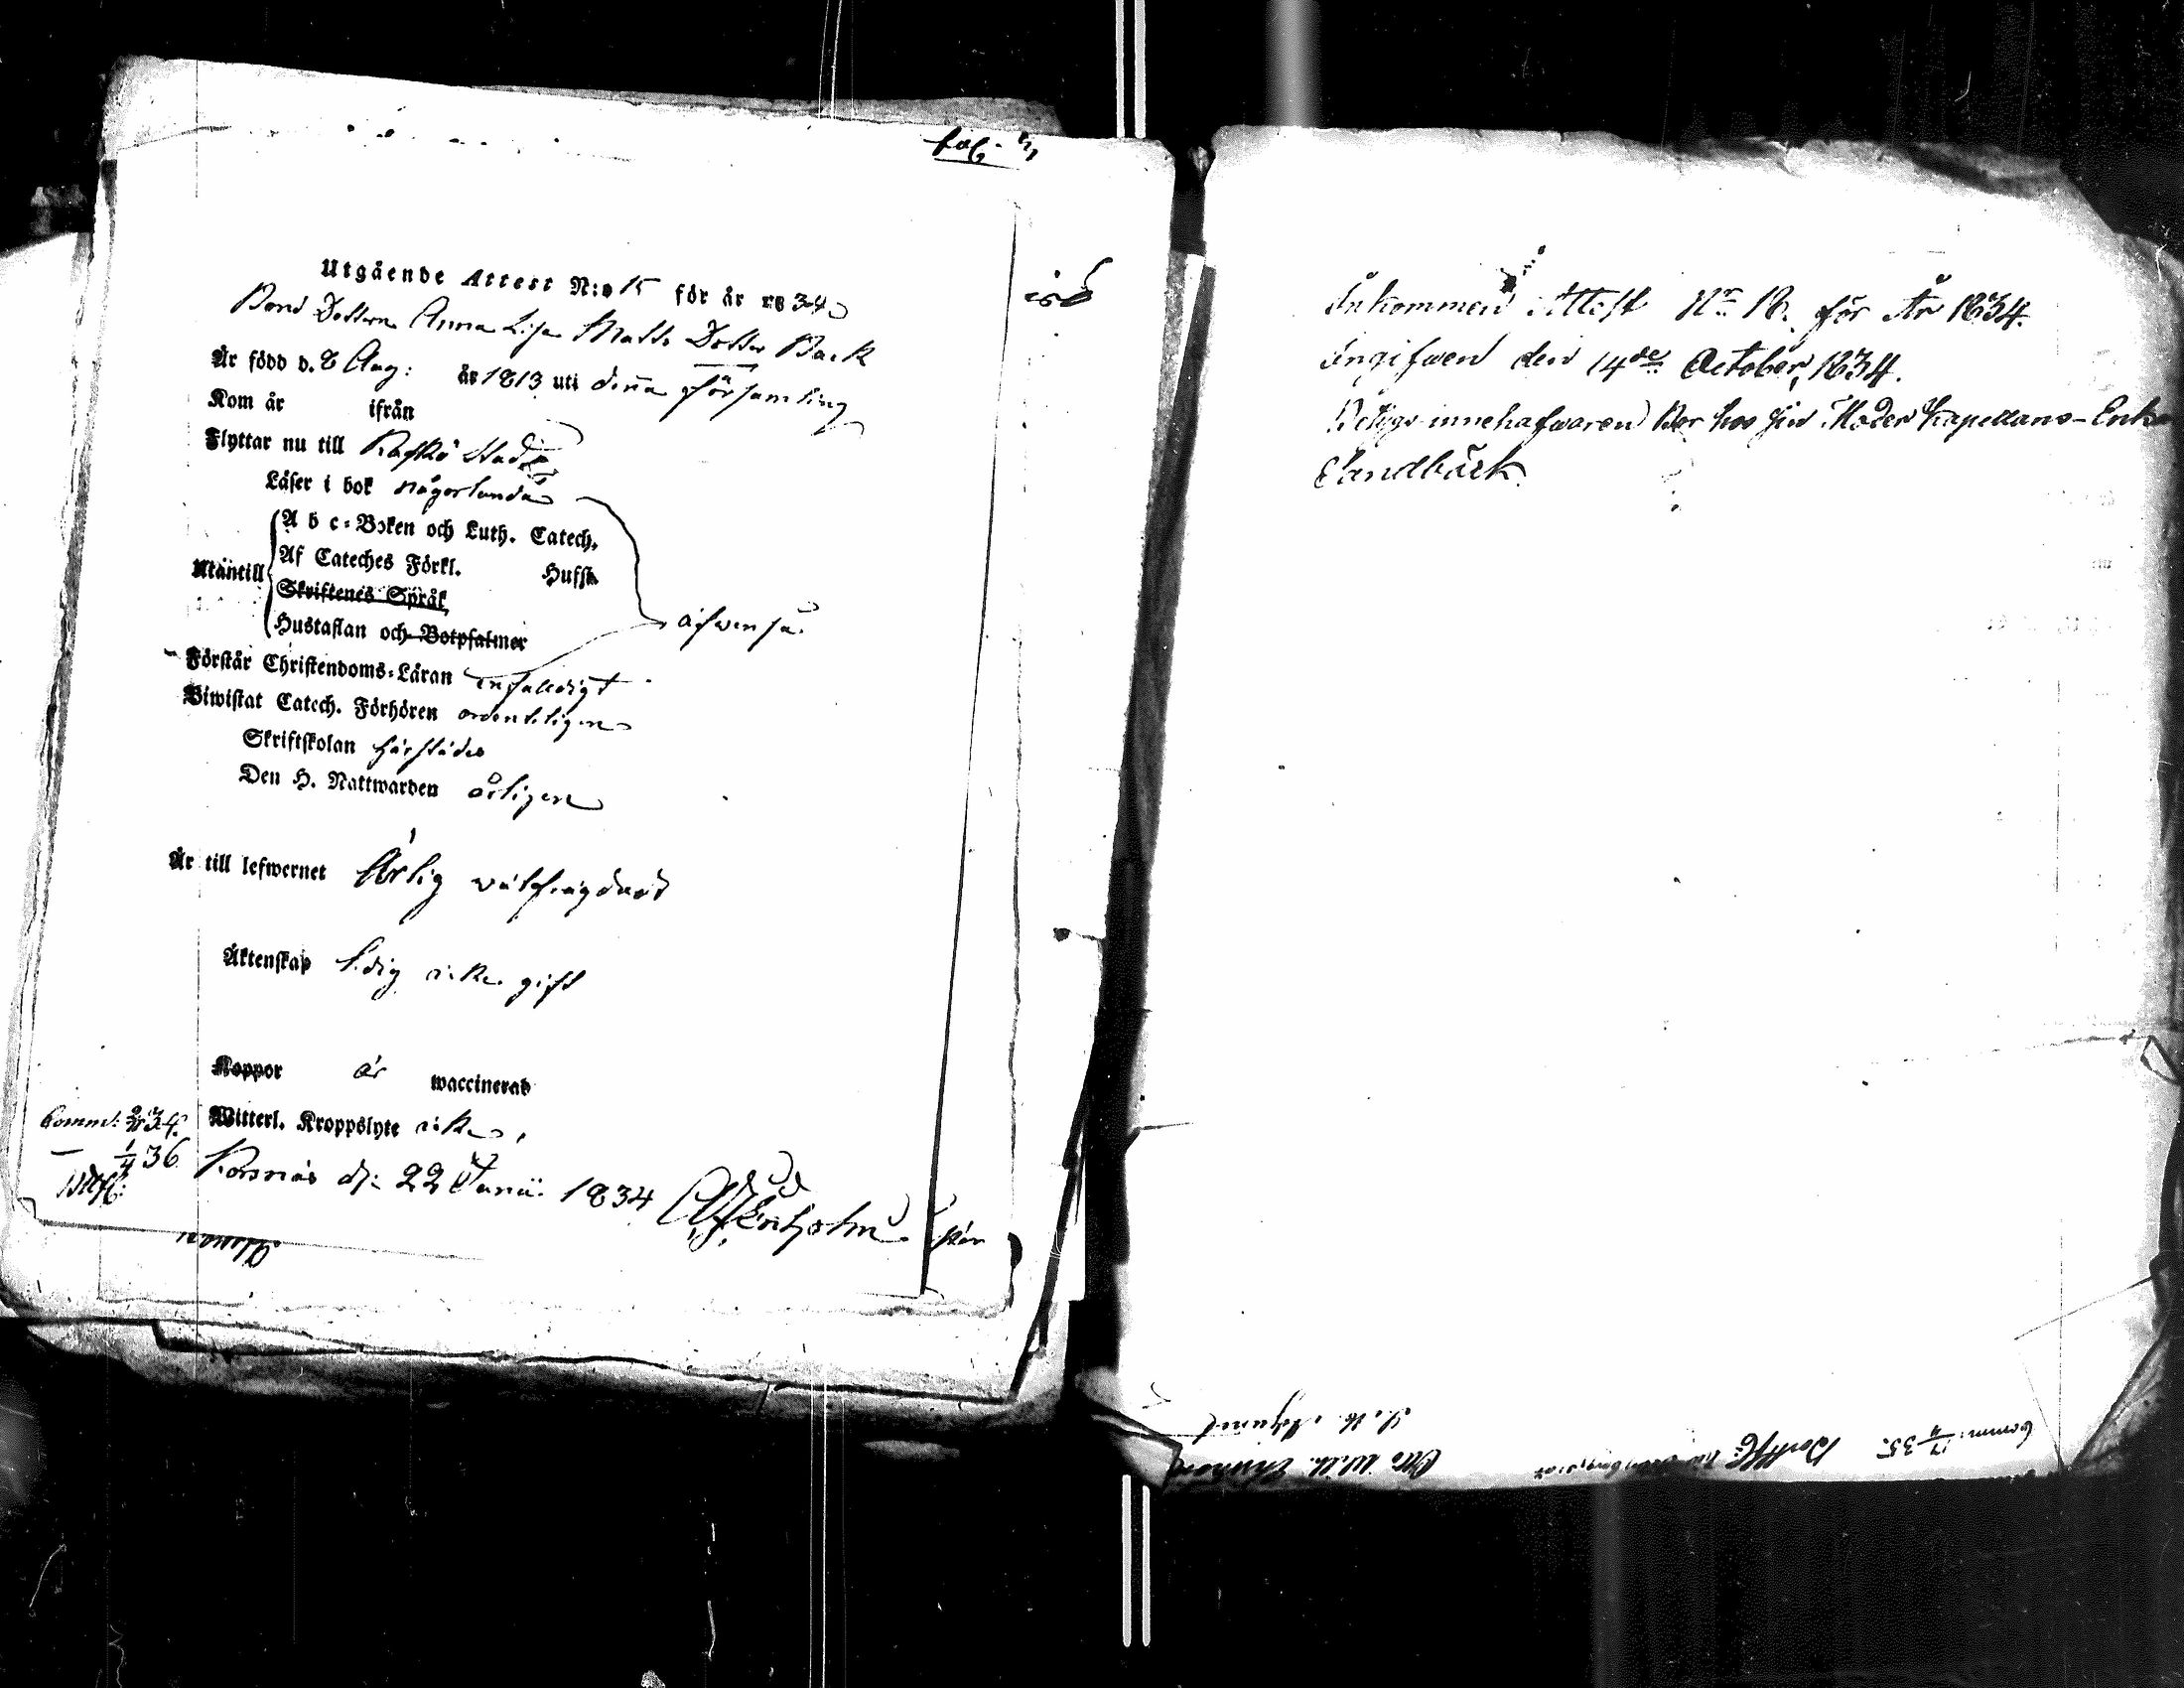 fol: 
Utgående Attest N:o 15 för år 1834
Bond Dottern Anna Lisa Matts Dotter Back
Är född d. 8 Aug: år 1813 uti denna församling
Kom år ifrån
Flyttar nu till Kaskö Stad
Läser i bok någorlunda
A b c-Boken och Luth. Catech.
Af Cateches Förkl. Hufft.
Utantill
Skriftenes Språk
Hustaflan och Botpsalmer
äfwenså
Förstår Christendoms-Läran enfaldigt
Biwistat Catech. Förhören ordentligen
Skriftskolan härstädes
Den H. Nattwarden årligen
Är till lefwernet Ärlig wälfrägdad
Äktenskap ledig icke gift
Koppor är waccinerad
Witterl. Kroppslyte icke
Comm: 34.
1/4 36.
Korsnäs d: 22 Junii 1834
Inkommen Attest No 18. för År 1834.
Ingifwen den 14de October, 1834.
Betygs innehafwaren Bor hos sin Moder Kapellans-Enka
Sandbäck.
Comm: 35.
Otto Wilh.